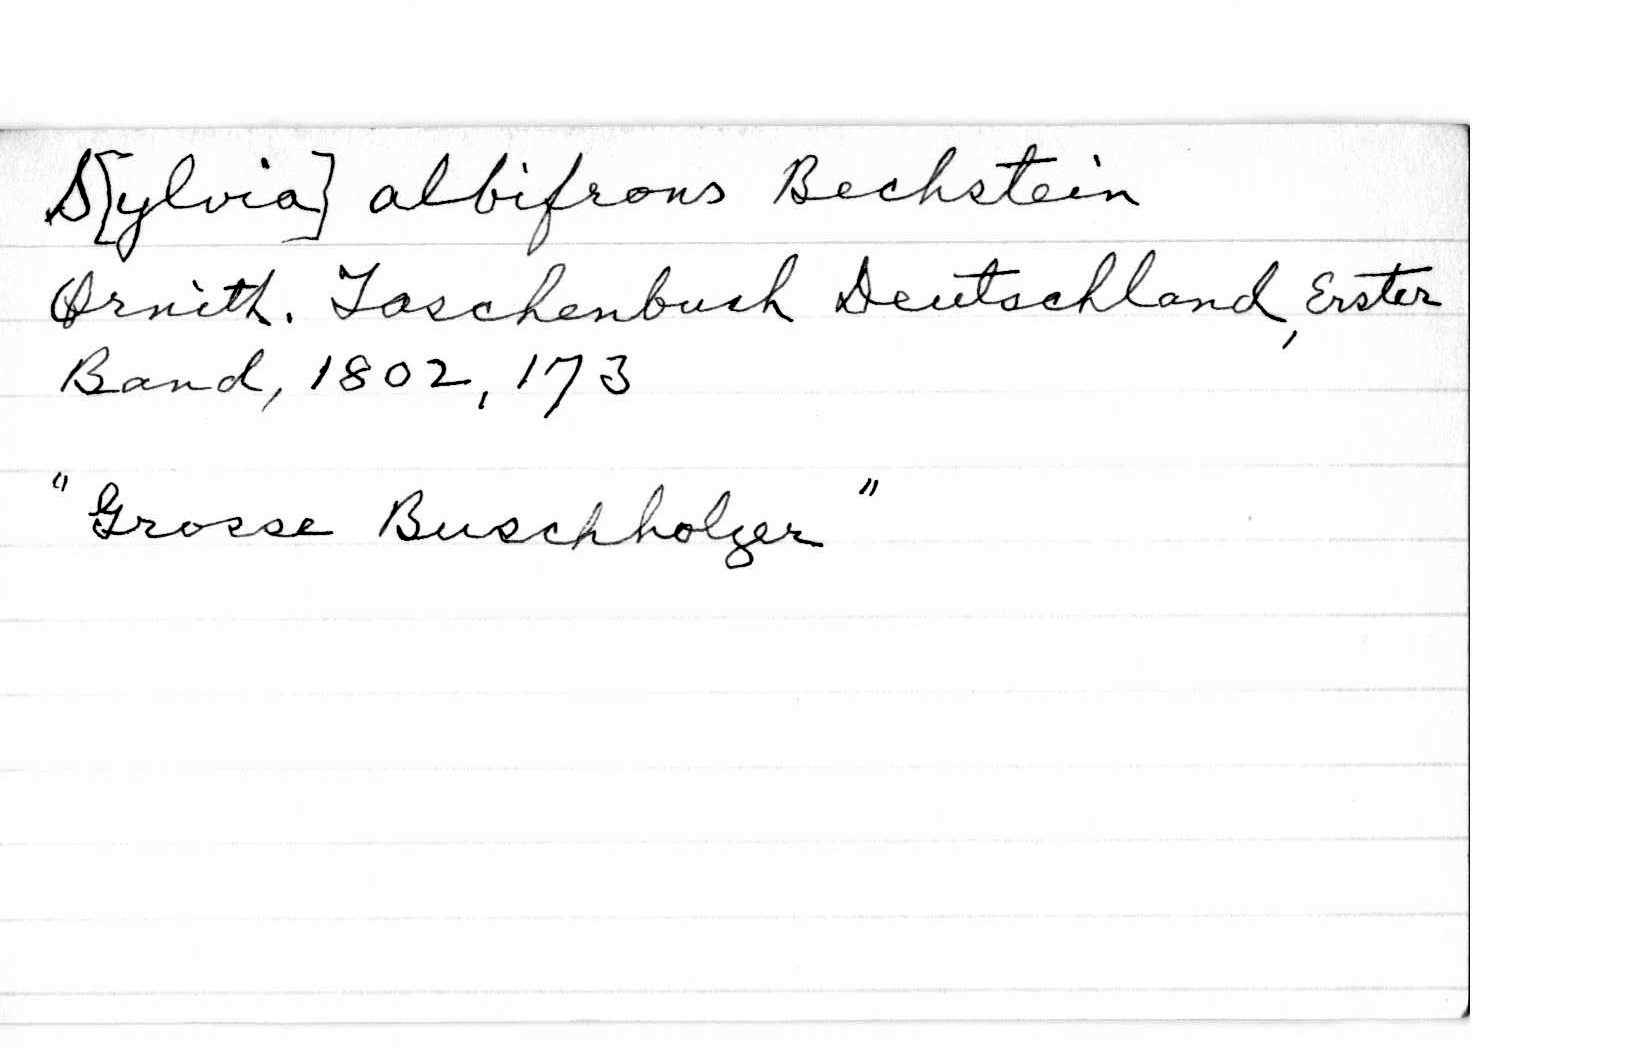 S[ylvia] albifrons Bechstein
Ornith. Taschenbuch Deutschland, Erster
Band, 1802, 173
"Grosse Buschholzer"